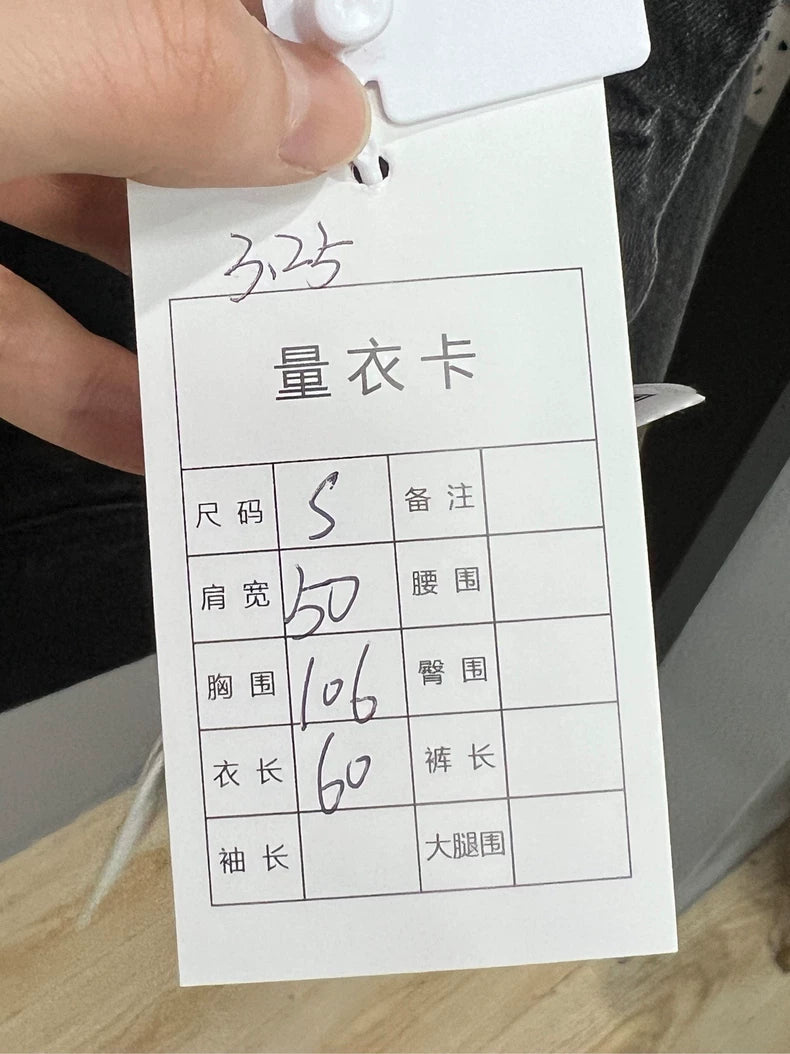 3.25
量衣卡
尺码 S 备注
肩宽 50 腰围
胸围 106 臀围
衣长 60 裤长
袖长 大腿围